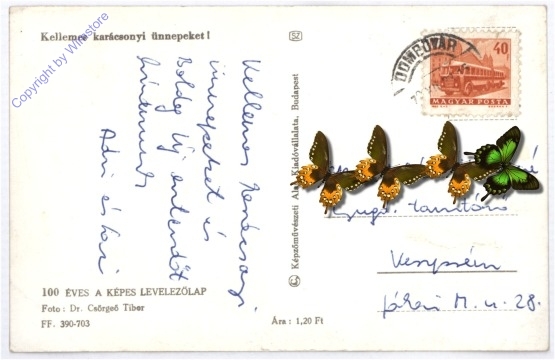 Kellemes karácsonyi ünnepeket!
Copyright by Winstore
Kellemes Karácsonyi
ünnepeket és
Boldog Új esztendőt
kívánunk
Adri és Kari
100 ÉVES A KÉPES LEVELEZŐLAP
Foto: Dr. Csörgeő Tibor
FF. 390-703
Ára: 1,20 Ft
Képzőművészeti Alap Kiadóvállalata, Budapest
SZ
DOMBÓVÁR
40
MAGYAR POSTA
nyug. tanító
Veszprém
Jókai M. u. 28.